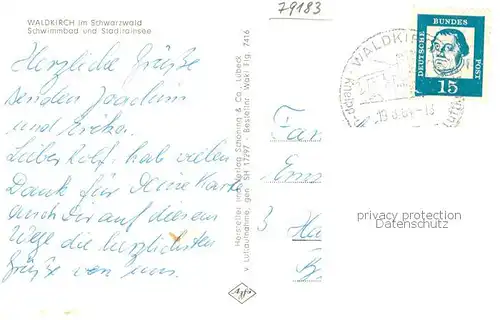 79183
WALDKIRCH im Schwarzwald
Schwimmbad und Stadtrainsee
Herzliche Grüße
senden Joachim
und Erika.
Lieber Rolf, hab vielen
Dank für Deine Karte
auch Dir auf diesem
Wege die herzlichsten
Grüße von uns.
Hersteller und Verlag Schöning & Co., Lübeck
v. Luftaufnahme, gen. SH 17/97 - Bestellnr. Waki Flg. 7416
Agfa
WALDKIRCH
DEUTSCHE BUNDES POST
15
Fam
3
privacy protection
Datenschutz